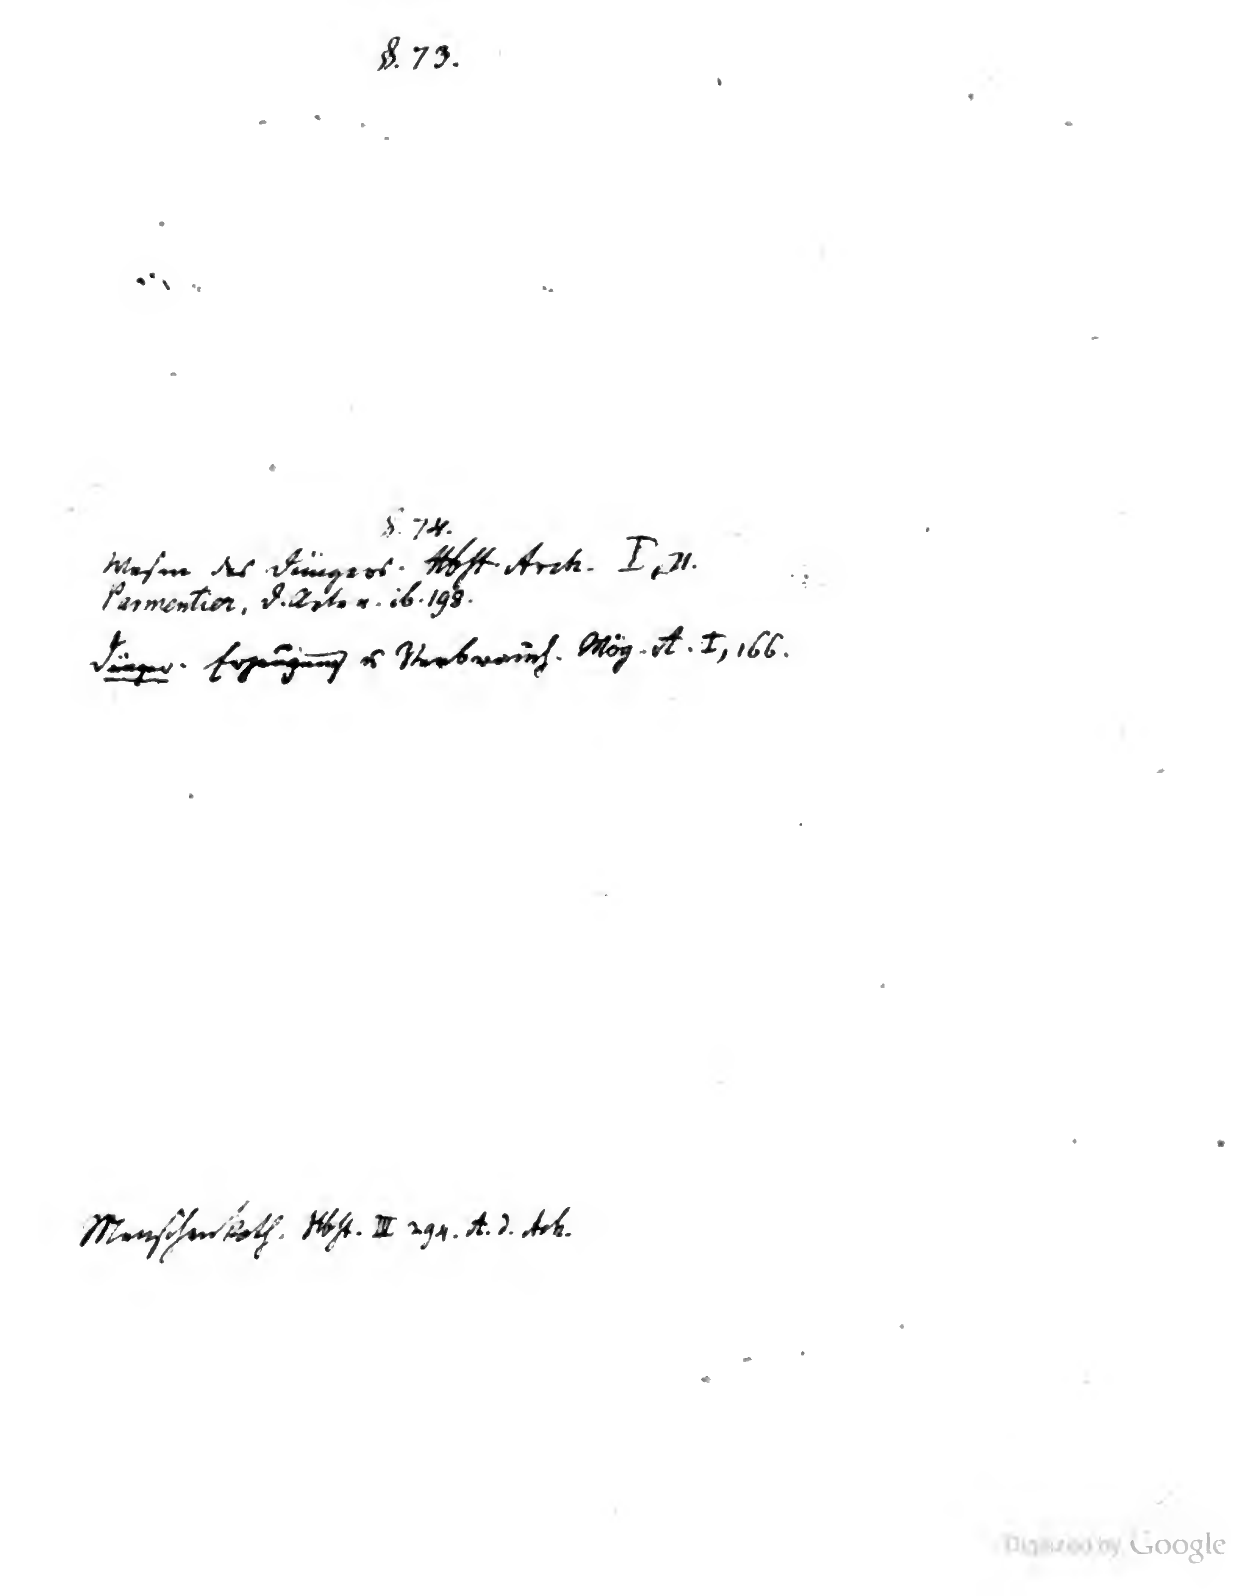 §. 73.
§. 74.
Wesen des Düngers. Hbst. Arch. I, 71.
Parmentier, d. Arten. ib. 198.
Dünger. Erzeugung u Verbrauch. Mög. A. I, 166.
Menschenkoth. Hbst. III 294. A. d. Ack.
Digitized by Google